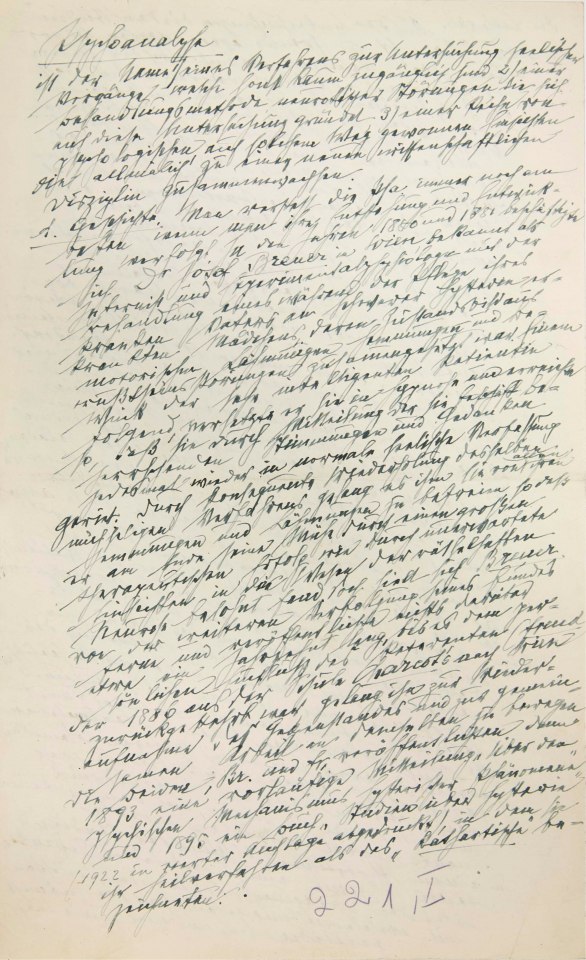 Psychoanalyse
ist der Name eines Verfahrens zur Untersuchung seelischer
Vorgänge, welche sonst kaum zugänglich sind 2) einer
Behandlungsmethode neurotischer Störungen die sich
auf diese Untersuchung gründet 3) einer Reihe von
psychologischen auf solchem Weg gewonnen Einsichten
die allmälich zu einer neuen wissenschaftlichen
Disziplin zusammenwachsen.
1. Geschichte. Man versteht die Psa. immer noch am
besten wenn man ihre Entstehung und Entwick-
lung verfolgt. In den Jahren 1880 und 1881 beschäftigte
sich Dr Josef Breuer in Wien bekannt als
Internist und Experimentalphysiologe mit der
Behandlung eines während der Pflege ihres
kranken Vaters an schwerer Hysterie er-
krankten Mädchens deren Zustandsbild aus
motorischen Lähmungen, Hemmungen und Be-
wußtseinsstörungen zusammengesetzt war. Einem
Wink der sehr intelligenten Patientin
folgend, versetzte er sie in Hypnose und erreichte
so, daß sie durch Mitteilung der sie be-
herrschenden Stimmungen und Gedanken
jedesmal wieder in normale seelische Verfassung
geriet. Durch konsequente Wiederholung desselben
mühseligen Verfahrens gelang es ihm sie von ihren
Hemmungen und Lähmungen zu befreien, so daß
er am Ende seine Mühe durch einen großen
therapeutischen Erfolg wie durch unerwartete
Einsichten in das Wesen der rätselhaften
Neurose belohnt fand. Doch hielt sich Breuer
von der weiteren Verfolgung seines Fundes
ferne und veröffentlichte nichts darüber
etwa ein Jahrzehnt lang, bis es dem per-
sönlichen Einfluß des Referenten Freud
der 1886 aus der Schule Charcot's nach Wien
zurückgekehrt war, gelang ihn zur Wieder-
aufnahme des Gegenstandes und zur gemein-
samen Arbeit an demselben zu bewegen
die beiden, Br. und Fr, veröffentlichten dann
1893 eine vorläufige Mitteilung "Über den
psychischen Mechanismus hysterischer Phänomene"
und 1895 ein Buch "Studien über Hysterie"
(1922 in vierter Auflage abgedruckt) in dem sie
ihr Heilverfahren als das „kathartische" be-
zeichneten.
221, I